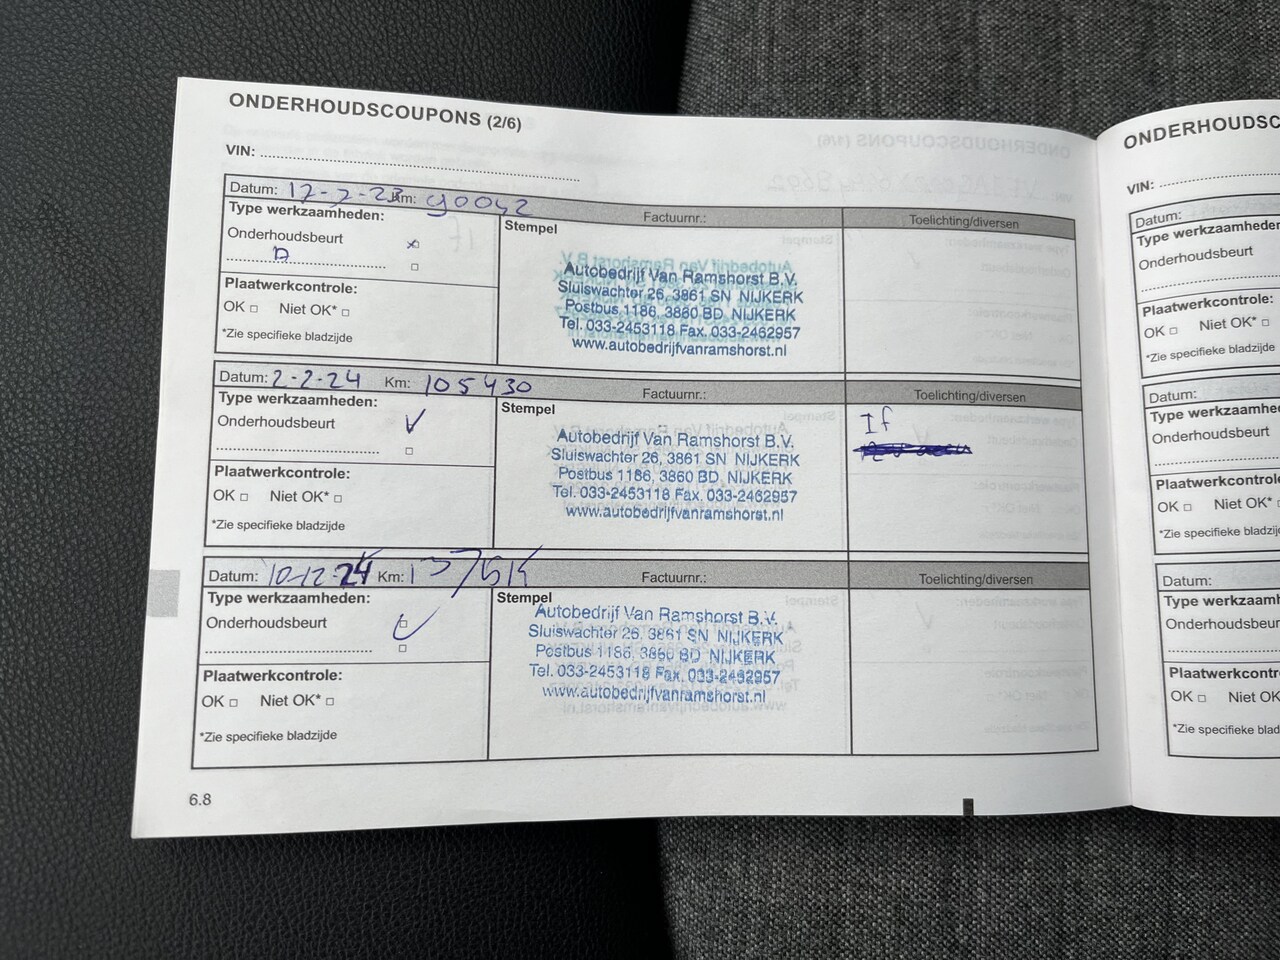 ONDERHOUDSCOUPONS (2/6)
VIN:
Datum: 17-7-23 Km: 90042 Factuurnr.: Toelichting/diversen
Type werkzaamheden: Stempel
Onderhoudsbeurt
Autobedrijf Van Ramshorst B.V.
Sluiswachter 26, 3861 SN NIJKERK
Postbus 1186, 3860 BD NIJKERK
Tel. 033-2453118 Fax. 033-2462957
www.autobedrijfvanramshorst.nl
Plaatwerkcontrole:
OK □ Niet OK* □
*Zie specifieke bladzijde
Datum: 2-2-24 Km: 105430 Factuurnr.: Toelichting/diversen
Type werkzaamheden: Stempel
Onderhoudsbeurt
If
Autobedrijf Van Ramshorst B.V.
Sluiswachter 26, 3861 SN NIJKERK
Postbus 1186, 3860 BD NIJKERK
Tel. 033-2453118 Fax. 033-2462957
www.autobedrijfvanramshorst.nl
Plaatwerkcontrole:
OK □ Niet OK* □
*Zie specifieke bladzijde
Datum: 10-12-24 Km: Factuurnr.: Toelichting/diversen
Type werkzaamheden: Stempel
Onderhoudsbeurt
Autobedrijf Van Ramshorst B.V.
Sluiswachter 26, 3861 SN NIJKERK
Postbus 1186, 3860 BD NIJKERK
Tel. 033-2453118 Fax. 033-2462957
www.autobedrijfvanramshorst.nl
Plaatwerkcontrole:
OK □ Niet OK* □
*Zie specifieke bladzijde
6.8
ONDERHOUDSC
VIN:
Datum:
Type werkzaamheden
Onderhoudsbeurt
Plaatwerkcontrole:
OK □ Niet OK* □
*Zie specifieke bladzijde
Datum:
Type werkzaamhe
Onderhoudsbeurt
Plaatwerkcontrol
OK □ Niet OK*
*Zie specifieke bladzij
Datum:
Type werkzaamh
Onderhoudsbeur
Plaatwerkcontro
OK □ Niet OK
*Zie specifieke blad